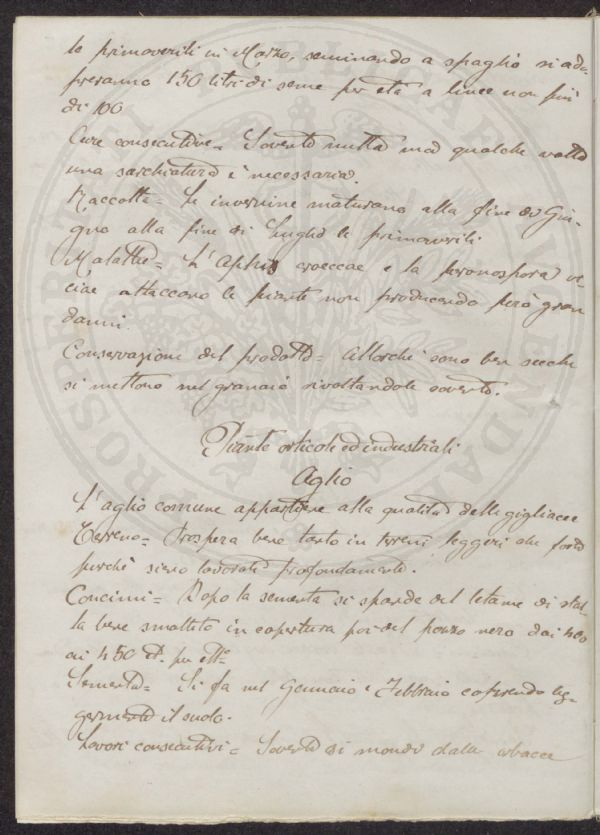 le primaverili in Marzo, seminando a spaglio si ado=
preranno 150 litri di seme per etta a linee non più
di 100
Cure consecutive = Sovente nulla ma qualche volta
una sarchiatura è necessaria.
Raccolta = Le invernine maturano alla fine di Giu-
gno alla fine di Luglio le primaverili.
Malattie = L'Aphis craccae e la peronospora vi-
ciae attaccono le piante non producendo però gran
danni.
Conservazione del prodotto = Allorchè sono ben secche
si mettono nel granaio rivoltandole sovente.
Piante orticole ed industriali
Aglio
L'aglio comune appartiene alla qualità delle gigliacee
Terreno = Prospera bene tanto in terreni leggeri che forti
purchè sieno lavorati profondamente.
Concimi = Dopo la sementa si spande del letame di stal-
la bene smaltito in copertura poi del pozzo nero dai 400
ai 450 et. per ett.º
Sementa = Si fa nel Gennaio e Febbraio coprendo leg-
germente il suolo.
Lavori consecutivi = Sovente si mondi dalle erbacce
PROSPERITATI